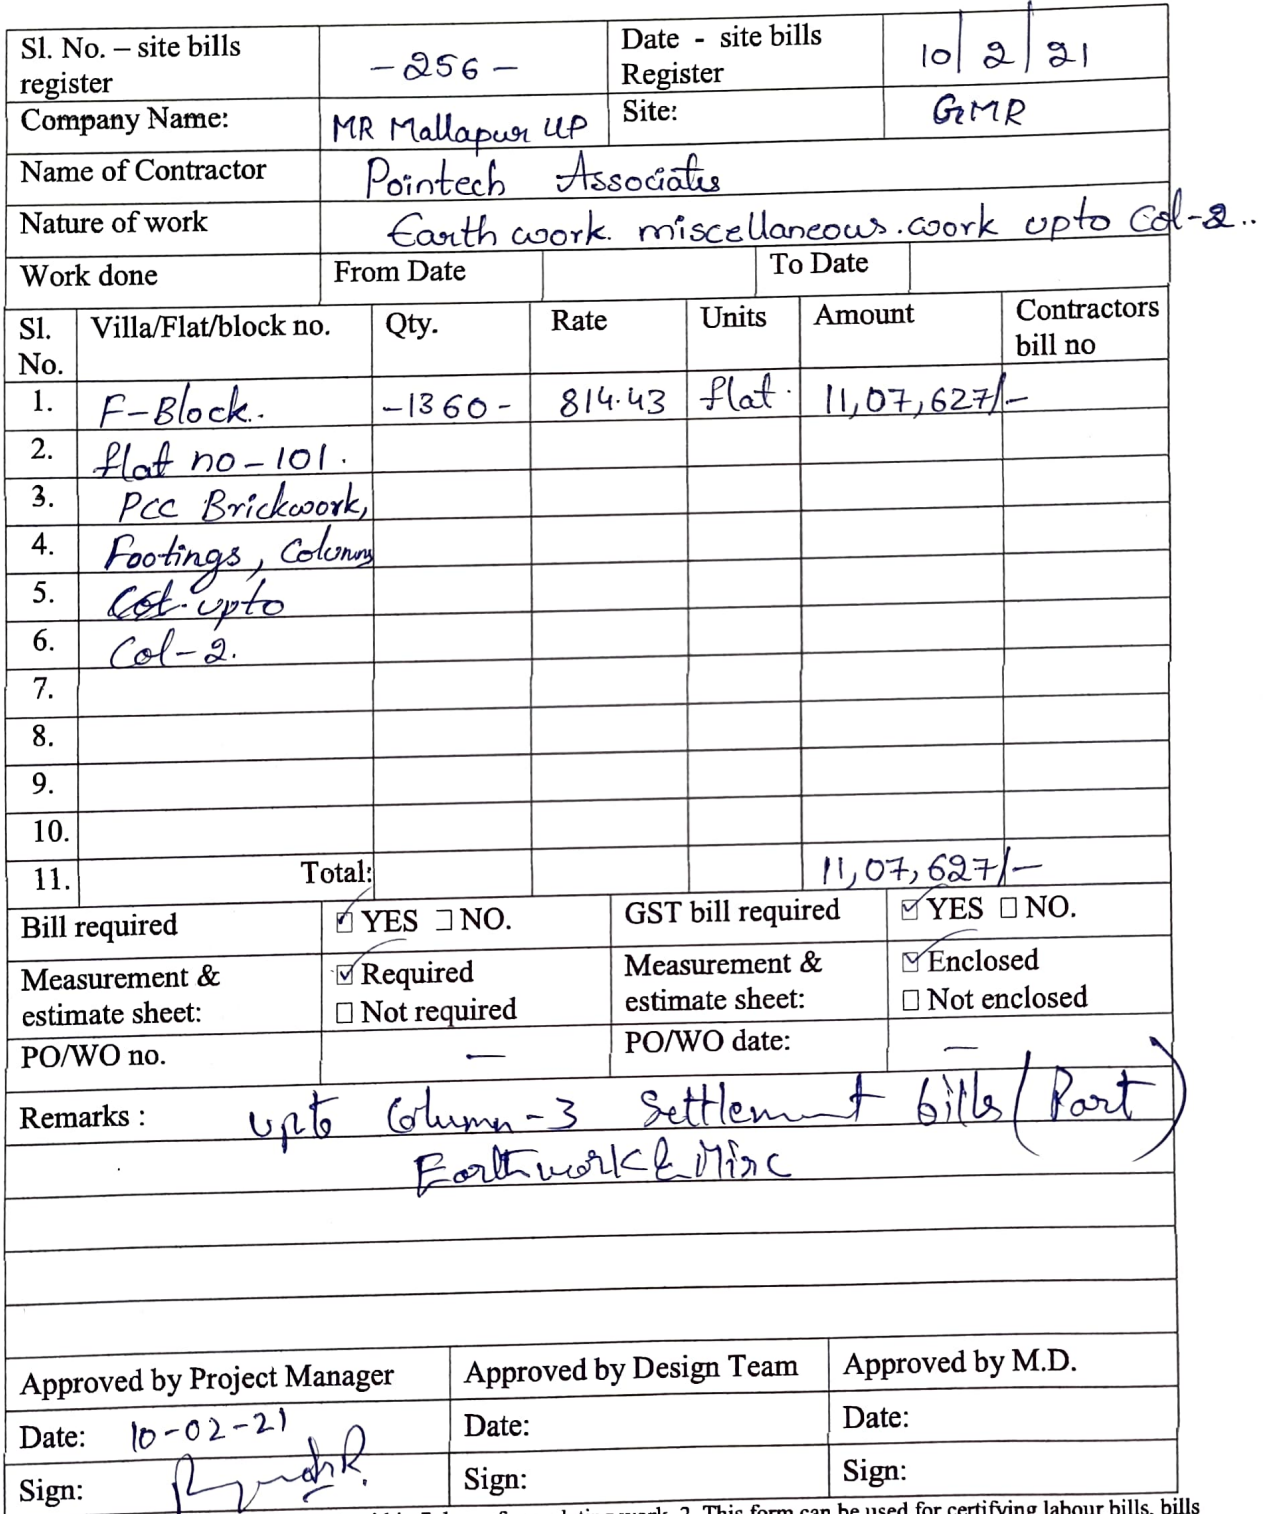 Sl. No. – site bills register -256- Date - site bills Register 10/2/21
Company Name: MR Mallapur LLP Site: GMR
Name of Contractor Pointech Associates
Nature of work Earth work. miscellaneous.work upto Col-2..
Work done From Date To Date
Sl. No. Villa/Flat/block no. Qty. Rate Units Amount Contractors bill no
1. F-Block. -1360- 814.43 flat. 11,07,627/-
2. flat no-101.
3. PCC Brickwork,
4. Footings, Columns
5. Col. upto
6. Col-2.
7.
8.
9.
10.
11. Total: 11,07,627/-
Bill required ☑ YES ☐ NO. GST bill required ☑ YES ☐ NO.
Measurement & estimate sheet: ☑ Required ☐ Not required Measurement & estimate sheet: ☑ Enclosed ☐ Not enclosed
PO/WO no. — PO/WO date: —
Remarks : upto Column-3 Settlement bills (Part)
Earthwork & Misc
Approved by Project Manager Approved by Design Team Approved by M.D.
Date: 10-02-21 Date: Date:
Sign: Sign: Sign:
2. This form can be used for certifying labour bills, bills